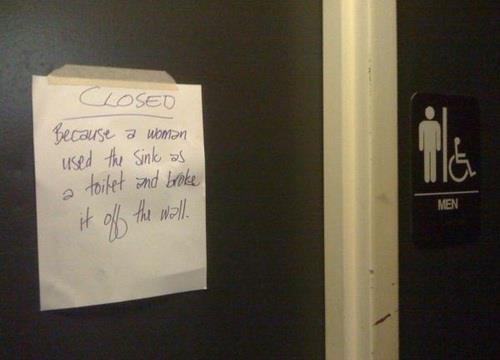 CLOSED
Because a woman
used the sink as
a toilet and broke
it off the wall.
MEN